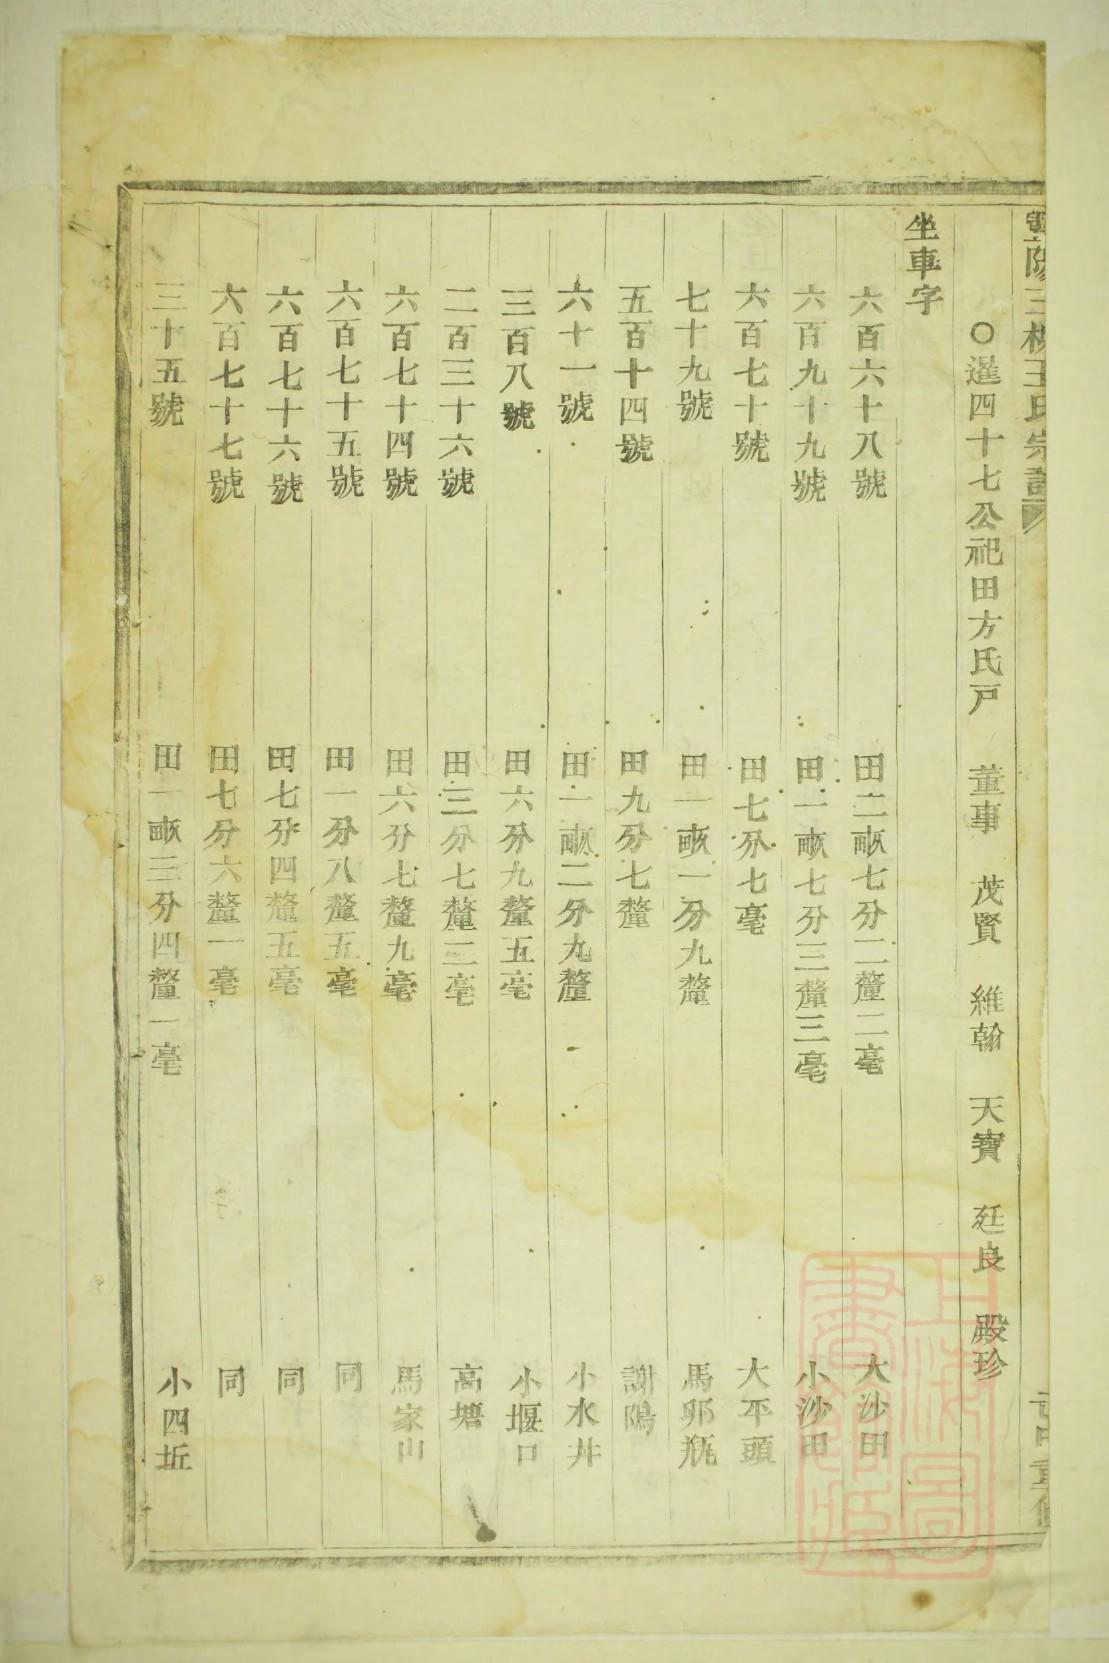 王氏宗譜
○暹四十七公祀田方氏戸 董事 茂賢 維翰 天寶 廷良 殿珍
坐車字
六百六十八號 田二畝七分二釐二毫 大沙田
六百九十九號 田一畝七分三釐三毫 小沙田
六百七十號 田七分七毫 大平頭
七十九號 田一畝一分九釐 馬郊瓶
五百十四號 田九分七釐 謝隖
六十一號 田一畝二分九釐 小水井
三百八號 田六分九釐五毫 小堰口
二百三十六號 田三分七釐三毫 高塘
六百七十四號 田六分七釐九毫 馬家山
六百七十五號 田一分八釐五毫 同
六百七十六號 田七分四釐五毫 同
六百七十七號 田七分六釐一毫 同
三十五號 田一畝三分四釐一毫 小四坵
上海圖書館藏